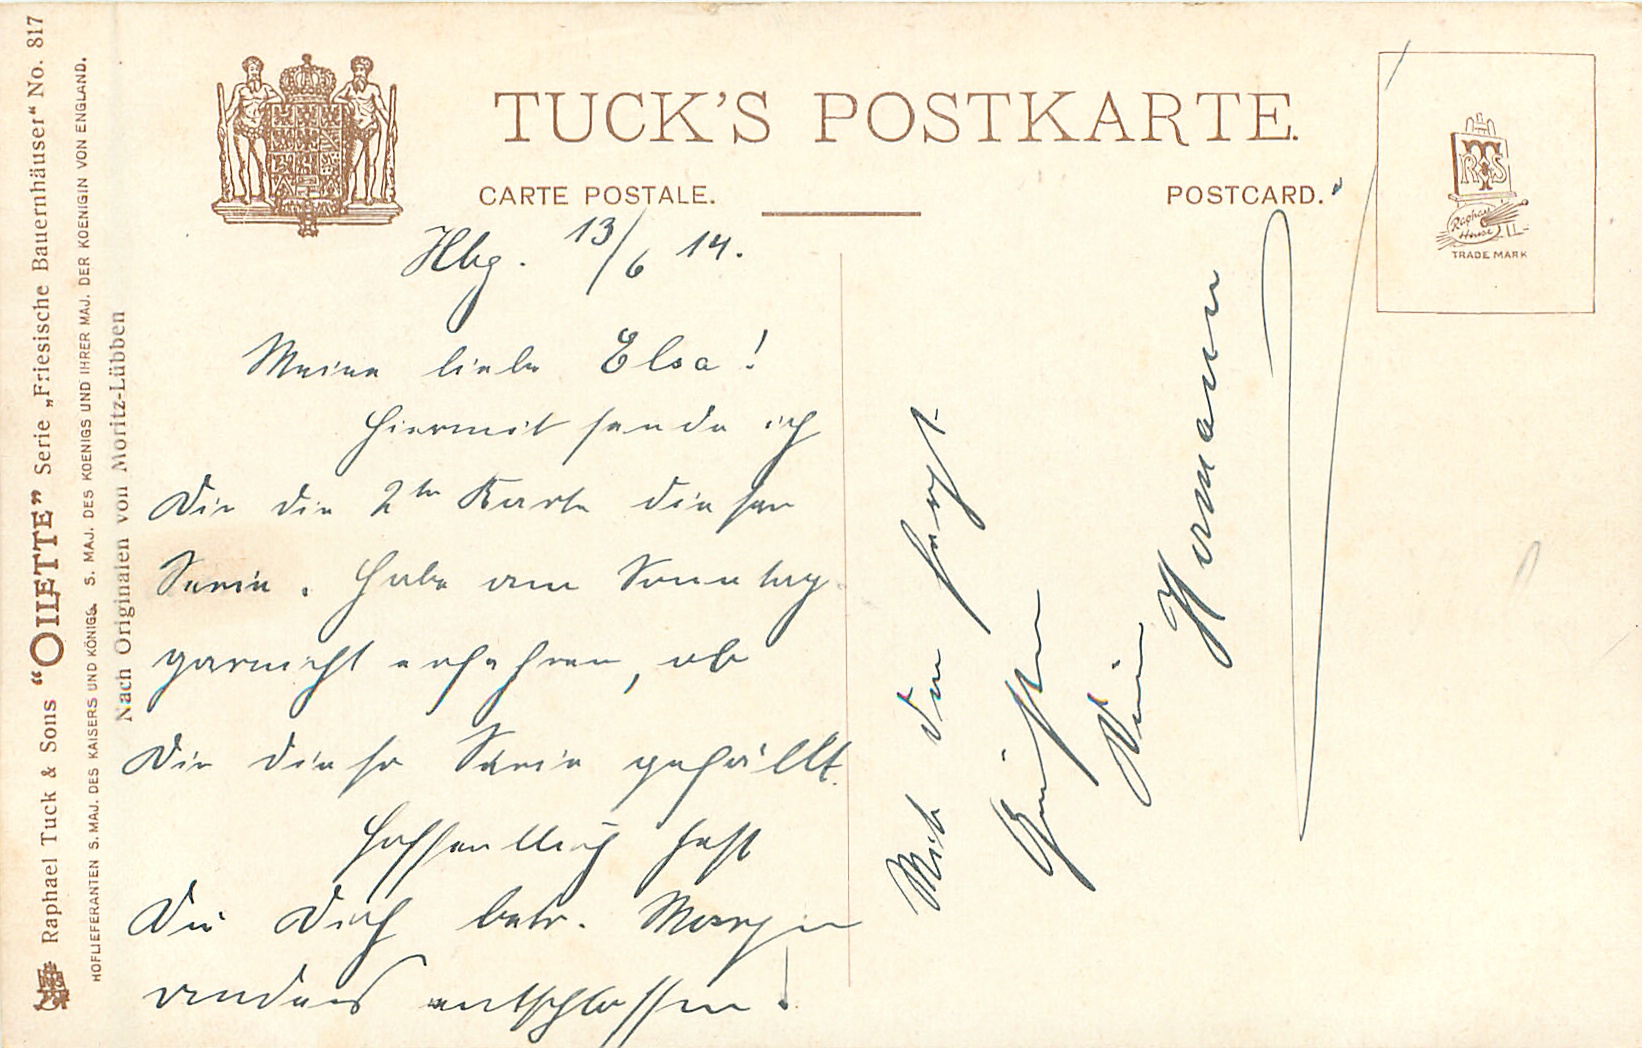 TUCK'S POSTKARTE.
CARTE POSTALE.
POSTCARD.
RTS
Raphael
House
TRADE MARK
Raphael Tuck & Sons “OILETTE” Serie „Friesische Bauernhäuser“ No. 817
HOFLIEFERANTEN S. MAJ. DES KAISERS UND KÖNIGS, S. MAJ. DES KOENIGS UND IHRER MAJ. DER KOENIGIN VON ENGLAND.
Nach Originalen von Moritz-Lübben
Hbg. 13/6 14.
Meine liebe Elsa!
Hiermit sende ich
Dir die 2te Karte dieser
Serie. Habe am Sonntag
garnicht erfahren, ob
Dir diese Serie gefällt.
Hoffentlich hast
Du Dich betr. Morgen
anders entschlossen!
Mit den
Grüßen
Dein Hermann